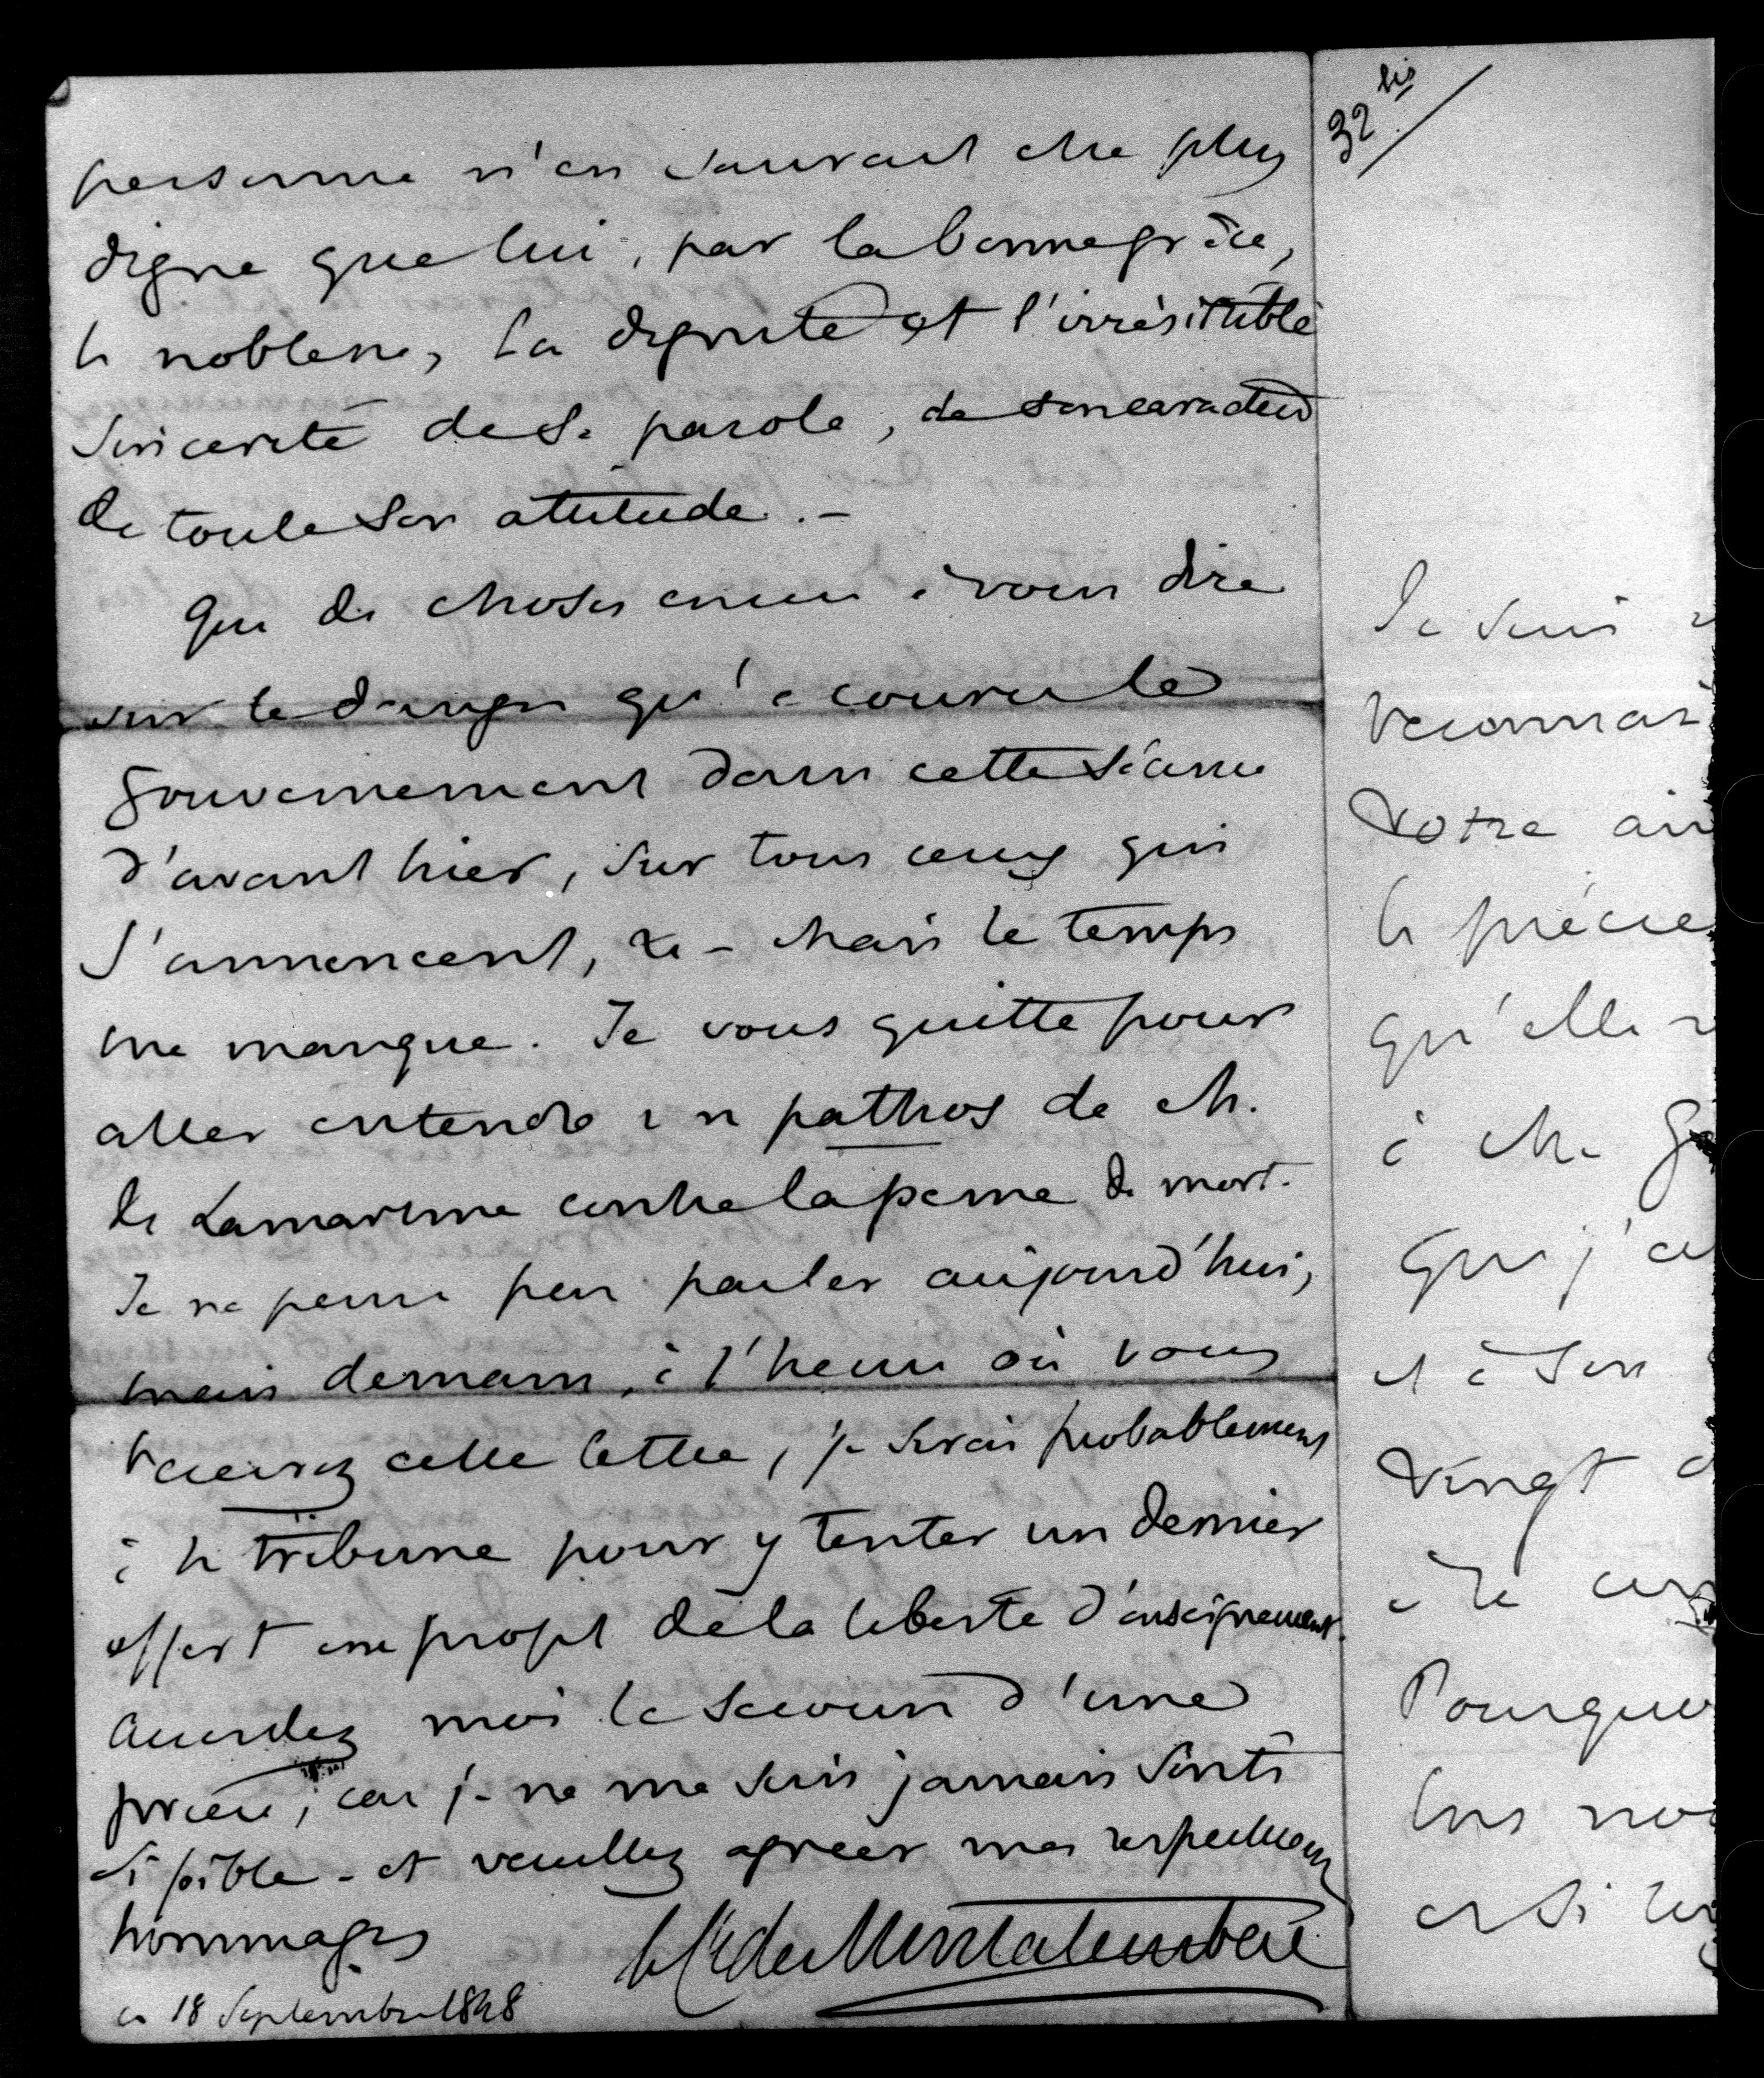 personne n'en saurait être plus
digne que lui, par la bonne grâce,
la noblesse, la dignité et l'irrésistible
sincerité de sa parole, de son caractère
de toute son attitude. –
Que de choses encore à vous dire
sur le danger qu'a couru le
gouvernement dans cette séance
d'avant hier, sur tous ceux qui
s'annoncent, &c – Mais le temps
me manque. Je vous quitte pour
aller entendre un pathos de M.
de Lamartine contre la peine de mort.
Je ne pense pas parler aujourd'hui,
mais demain, à l'heure où vous
recevrez cette lettre, je serai probablement
à la tribune pour y tenter un dernier
effort à propos de la liberté d'enseignement.
Accordez moi le secours d'une
prière, car je ne me suis jamais senti
si faible – et veuillez agréer mes respectueux
hommages
le Cte de Montalembert
ce 18 Septembre 1848
32 bis
Je suis
reconnais
votre ai
la précie
qu'elle
à Me
que j'ai
et à son
vingt
Pourquoi
et si